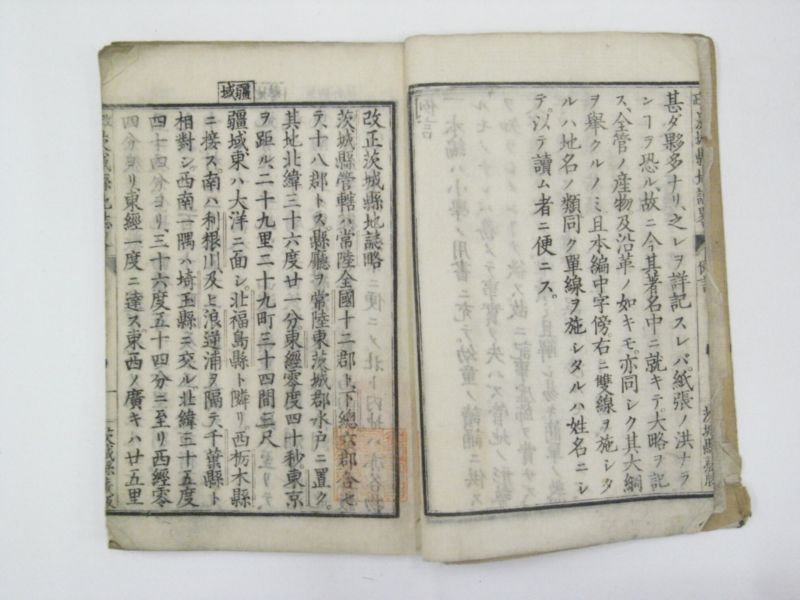 甚ダ夥多ナリ、之レヲ詳記スレバ、紙張ノ洪ナラ
ンヿヲ恐ル、故ニ今其著名中ニ就キテ、大略ヲ記
ス、全管ノ産物及沿革ノ如キモ、亦同シク其大綱
ヲ舉クルノミ、且本編中字傍右ニ雙線ヲ施シタ
ルハ地名ノ類同ク單線ヲ施シタルハ姓名ニシ
テ、以テ讀ム者ニ便ニス。
疆域
改正茨城縣地誌略
茨城縣管轄ハ常陸全國十二郡ト、下總六郡合セ
テ、十八郡トス。縣廳ヲ常陸東茨城郡水戸ニ置ク。
其地北緯三十六度廿一分。東經零度四十秒。東京
ヲ距ル、二十九里二十九町三十四間三尺
疆域、東ハ大洋ニ面シ。北福島縣ト隣リ。西栃木縣
ニ接ス。南ハ利根川及ヒ浪逆浦ヲ隔テ千葉縣ト
相對シ。西南一隅ハ埼玉縣ニ交ル。北緯三十五度
四十四分ヨリ、三十六度五十四分ニ至リ。西經零
四分ヨリ、東經一度ニ達ス。東西ノ廣キハ廿五里
茨城縣地誌